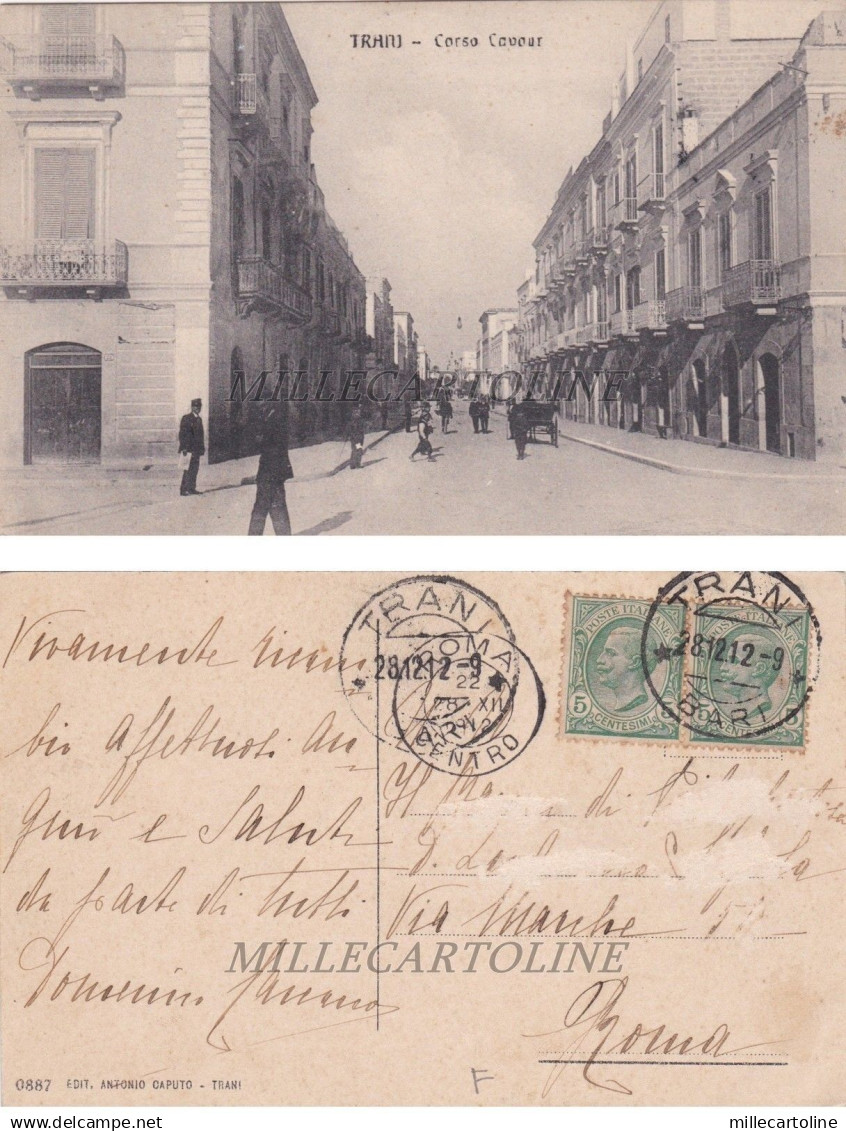 TRANI - Corso Cavour
MILLECARTOLINE
TRANI
28.12.12-9
BARI
ROMA
22
28 XII
CENTRO
POSTE ITALIANE
5 CENTESIMI 5
POSTE ITALIANE
5 CENTESIMI 5
TRANI
28.12.12-9
BARI
Vivamente ricam
bio affettuosi au
guri e Saluti
da parte di tutti
Domenico
Il di
D.
Via Marche
Roma
MILLECARTOLINE
0887 EDIT. ANTONIO CAPUTO - TRANI
F
delcampe.net
millecartoline